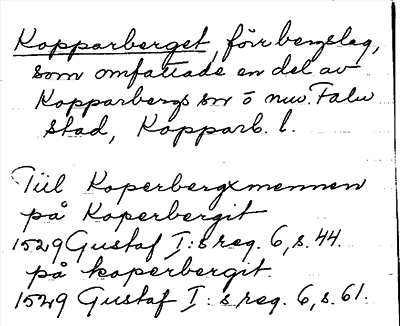 Kopparberget, förr bergslag,
som omfattade en del av
Kopparbergs sn o nuv. Falu
stad, Kopparb. l.
Tiil Koperbergxmennen
på Koperbergit
1529 Gustaf I:s reg. 6, s. 44.
på koperbergit
1529 Gustaf I:s reg. 6, s. 61.